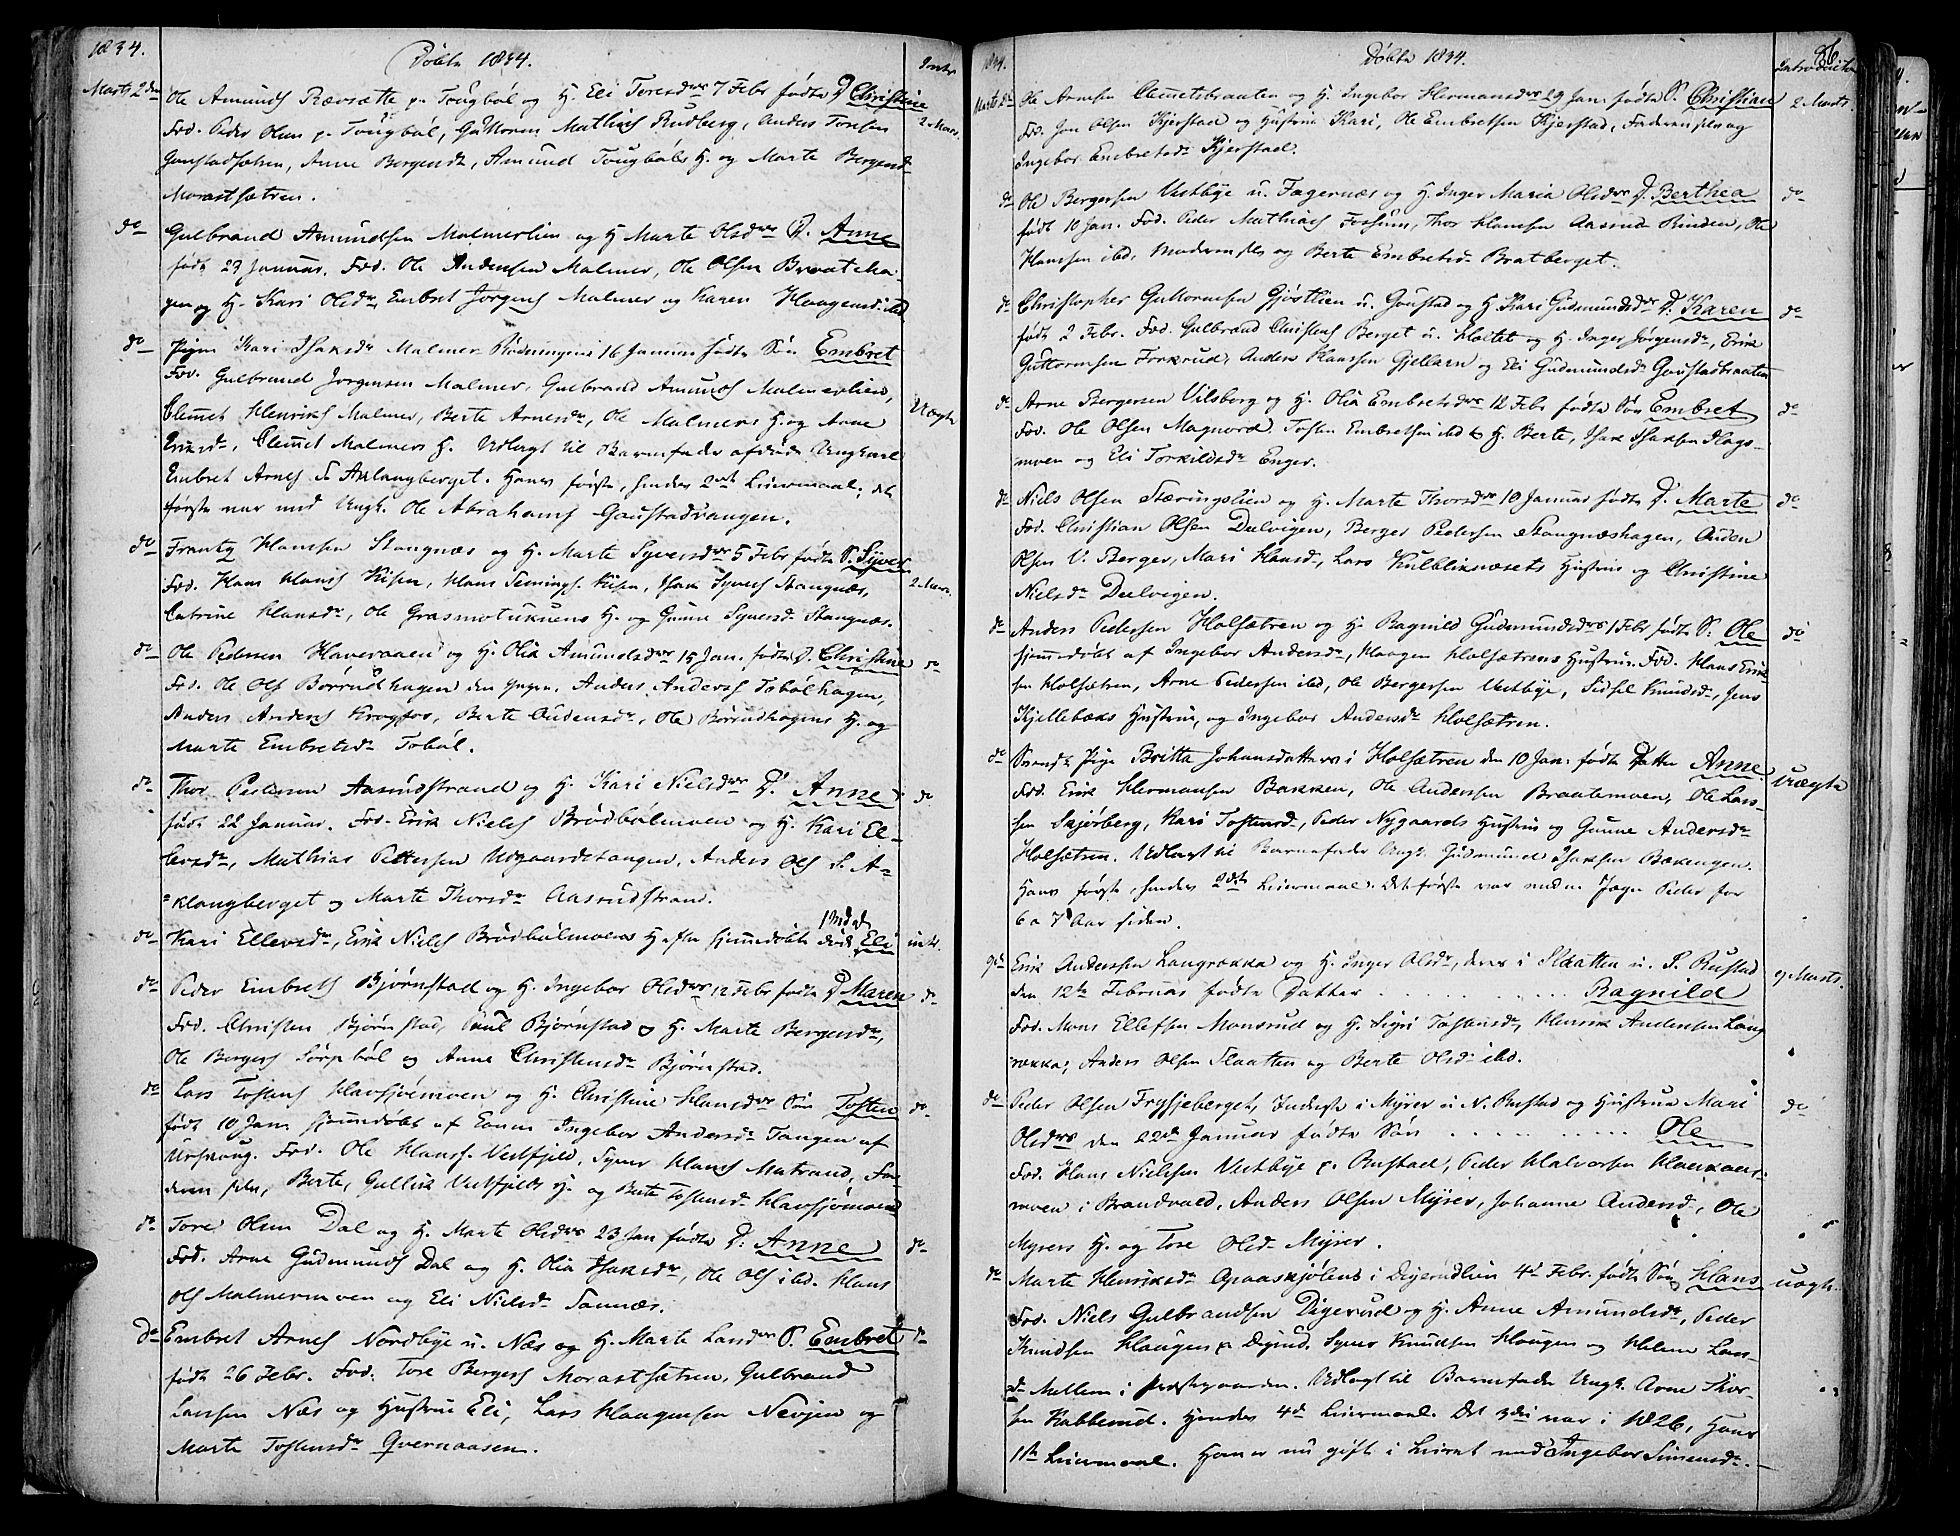 1834.
Döbte 1834.
Introd.
Marts 2den Ole Amunds Rævsætte p. Tougböl og H. Eli Toresdr 7 Febr födte D. Christine 2 Mars.
Fad. Peder Olsen p. Tougböl, Guttorm Mathis Rudberg, Anders Toresen
Goustadsætren, Anne Bergersdr, Amund Tougböls H. og Marte Bergersdr
Morastsætren.
do Gulbrand Amundsen Malmerlien og H. Marte Olsdr D. Anne
födt 27 Januar. Fad. Ole Andersen Malmer, Ole Olsen Braateha-
gen og H. Kari Olsdr Embret Jörgens Malmer og Karen Haagensdr ibd.
do Pigen Kari Isaksdr Malmer Rödningens 16 Januar födte Sön Embret
Fad. Gulbrand Jorgensen Malmer, Gulbrand Amunds Malmerlien,
Clemet Henriks Malmer, Berte Arnesdr, Ole Malmers H. og Anne Uægte
Eriksdr, Clemet Malmers H. Udlagt til Barnefader afdöde Ungkarl
Embret Arnes S. Aklangberget. Hans förste, hendes 2det Leiermaal; det
förste var med Ungk. Ole Abrahams Goustadvangen.
do Frantz Hansen Stangnæs og H. Marte Syversdr 5 Febr födte S. Syver
Fad. Hans Hans Kisen, Hans Femings. Kisen, Isak Syvers Stangnæs, 2 Mars.
Catrine Hansdr, Ole Grasmotukuens H. og Gunne Syversd Stangnæs.
do Ole Pedersen Haveraaen og H. Olia Amundsdr 15 Jan. födte D. Christine do
Fad. Ole Ols Börrudhagen den yngre, Anders Anders Tobölhagen,
Anders Anders Krogfos, Berte Audensdr, Ole Börrudhagens H. og
Marte Embretsdr Toböl.
do Thor Pedersen Aasrudstrand og H. Kari Nielsdr D. Anne do
födt 22 Januar. Fad. Erik Niels Brödbölmoen og H. Kari El-
lersdr, Mathias Pettersen Udgaardstangen, Anders Ols S. A-
klangberget og Marte Thorsdr Aasrudstrand.
do Kari Ellersdr, Erik Niels Brödbölmoens H. efter hjemmedöbte död Eli intr.
do Peder Embrets Björnstad og H. Ingebor Olsdr 12 Febr födte D. Maren do
Fad. Christen Björnstad, Paul Björnstad og H. Marte Bergersdr,
Ole Bergers Sörpeböl og Anne Christensdr Björnstad.
do Lars Tostens Havsjömoen og H. Christine Hansdr Sön Tosten do
födt 10 Jan. hjemmedöbt af Konen Ingebor Andersdr Tangen af
Urskoug. Fad. Ole Hans. Vestfjeld, Syver Hans Matrand, Fa-
deren selv, Berte, Gullik Vestfjelds H. og Berte Tostensd Havsjömoen
do Tore Olsen Dal og H. Marte Olsdr 23 Jan födte D. Anne do
Fad. Arne Gudmunds Dal og H. Olia Isaksdr, Ole Ols ibd. Hans
Ols Malmermoen og Eli Nielsdr Sannæs.
do Embret Arnes Nordbye u. Næs og H. Marte Larsdr S. Embret do
födt 26 Febr. Fad. Tore Bergers Morastsætren, Gulbrand
Larsen Næs og Hustrue Eli, Lars Haagensen Nevjen og
Marte Tostensdr Qvernaasen.
1834.
Döbte 1834.
86
Introducerte
Marts do Ole Arnesen Clemetsbraaten og H. Ingebor Hermansdr 29 Jan. födte S. Christian 2 Marts.
Fad. Jon Olsen Kjerstad og Hustrue Kari, Ole Embretsen Kjerstad, Faderen selv og
Ingebor Embretsdr Kjerstad.
do Ole Bergersen Vestbye u. Fagernæs og H. Inger Maria Olsdr D. Berthea do
födt 10 Jan. Fad. Peder Mathias Fossum, Thor Hansen Aasrud Rinden, Ole
Hansen ibd, Moderen selv og Berte Embretsdr Bratberget.
do Christopher Guttormsen Gjöstlien u. Goustad og H. Kari Gudmundsdr D. Karen do
födt 2 Febr. Fad. Gulbrand Christens Berget u. Holtet og H. Inger Jörgensdr, Erik
Guttormsen Forkrud, Anders Hanssen Gjellern og Eli Gudmundsdr Goustadbraaten
do Arne Bergersen Vilsborg og H. Olia Embretsdr 12 Febr födte Sön Embret do
Fad. Ole Olsen Magnord. Tosten Embretsen ibd & H. Berte, Isak Isaksen Hags-
moen og Eli Torkildsdr Enger.
do Niels Olsen Stæringslien og H. Marte Thorsdr 10 Januar födte D. Marte do
Fad. Christian Olsen Dulvigen, Berger Pedersen Stangnæshagen, Auden
Olsen V. Berger, Mari Hansdr, Lars Kulbliknæsets Hustrue og Christine
Nielsdr Dulvigen.
do Anders Pedersen Holsætren og H. Ragnild Gudmundsdr 1 Febr födte S. Ole do
hjemmedöbt af Ingebor Andersdr, Haagen Holsætrens Hustrue. Fad. Hans Erik-
sen Holsætren, Arne Pedersen ibd, Ole Bergersen Vestbye, Sidsel Knudsdr, Jens
Kjellebæks Hustrue, og Ingebor Andersdr Holsætren.
do Svensk Pige Britta Johansdatter i Holsætren den 10 Jan. födte Datter Anne Uægte
Fad. Erik Hermansen Bakken, Ole Anderssen Braatemoen, Ole Lars-
sen Skjörberg, Kari Tostensdr, Peder Nygaards Hustrue og Gunne Andersdr
Holsætren. Udlagt til Barnefader Ungk. Gudmund Isaksen Bækengen.
Hans förste, hendes 2det Leiermaal. Det förste var med en Jæger Peder for
6 a 7 Aar siden.
9de Erik Anderssen Langrækka og H. Inger Olsdr, deres i Slaatten u. S. Rustad 9 Marts.
den 12te Februar födte Datter . . . . . . . . . Ragnild
Fad. Mons Ellefsen Monsrud og H. Sigri Tostensdr, Henrik Andersen Lang
rækka, Anders Olsen Slaatten og Berte Olsdr ibd.
do Peder Olsen Frysjeberget, Inderste i Myrer u. N. Rustad og Hustrue Mari do
Olsdr den 22de Januar födte Sön . . . . . . . . Ole
Fad. Hans Nielsen Vestbye p. Rustad, Peder Halvorsen Haakaas-
moen i Brandvald, Anders Olsen Myrer, Johanne Andersdr, Ole
Myrers H. og Tore Olsdr Myrer.
do Marte Henriksdr Aspaaskjölens i Digerudlien 4de Febr. födte Sön Hans uægte.
Fad. Niels Gulbrandsen Digerud og H. Anne Amundsdr, Peder
Knudsen Haugen p. Digerud, Syver Knudsen Haugen og Helene Lars-
dr Mellem i Præstegaarden. Udlagt til Barnefader Ungk. Arne Thor-
sen Kabberud. Hendes 4de Leiermaal. Det 3die var i 1826, Hans
1ste Leiermaal. Han er nu gift i Leirat med Ingebor Simensdr.